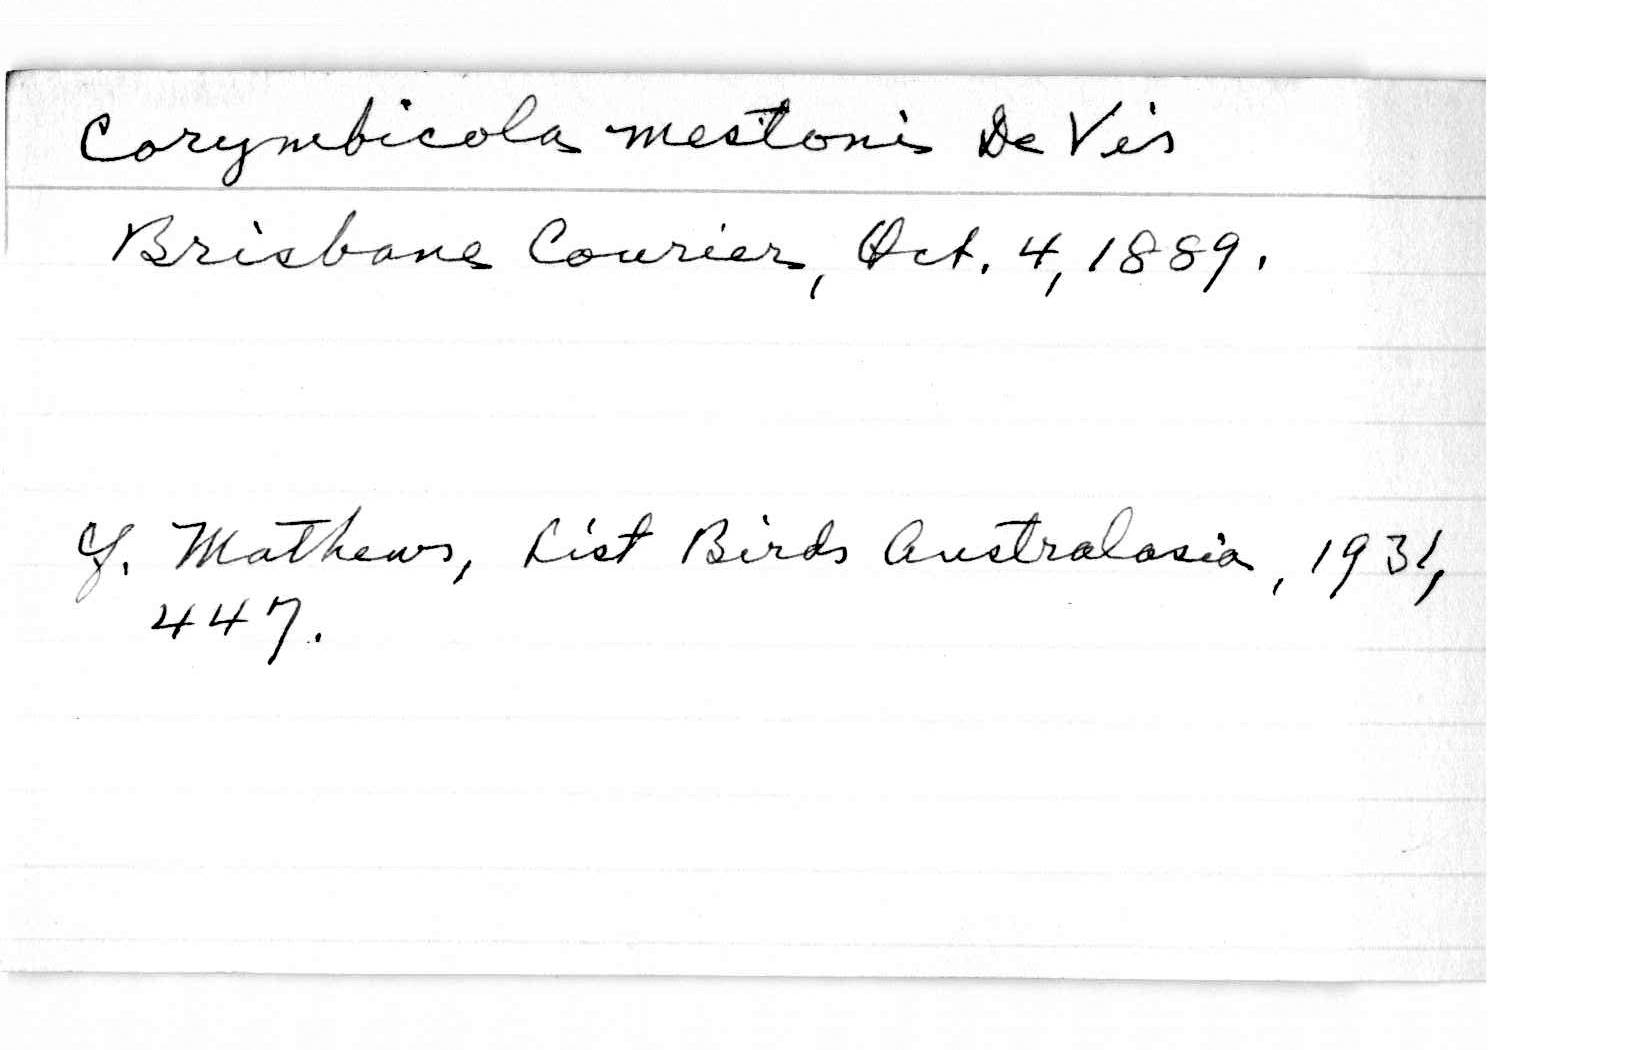 Corymbicola mestoni De Vis
Brisbane Courier, Oct. 4, 1889.
Cf. Mathews, List Birds Australasia, 1931,
447.